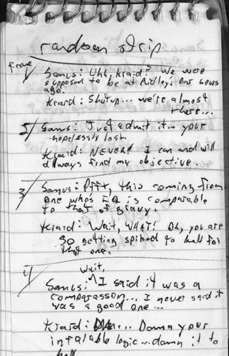 random strip
Frame
1/ Samus: Uhh, Kraid? We were
supposed to be at Ridley's two hours
ago.
Kraid: Shutup... we're almost
there...
2/ Samus: Just admit it... your
hopelessly lost.
Kraid: NEVER! I can and will
always find my objective.
3/ Samus: Pfft, this coming from
one who's IQ is comparable
to that of gravy.
Kraid: Wait, WHAT! Oh, you are
so getting spiked to hell for
that one.
4/ Wait,
Samus: I said it was a
comparasson... I never said it
was a good one...
Kraid: ... Damn your
infalable logic... damn it to
hell